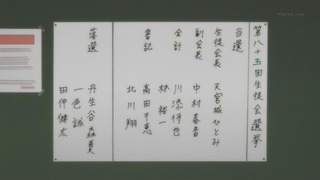 第八十五回生徒会選挙
当選
生徒会長 天宮城ひとみ
副会長 中村喜吉
会計 川添将也
林祐一
書記 高田千恵
北川翔
落選
丹生谷森夏
一色誠
田仲健太